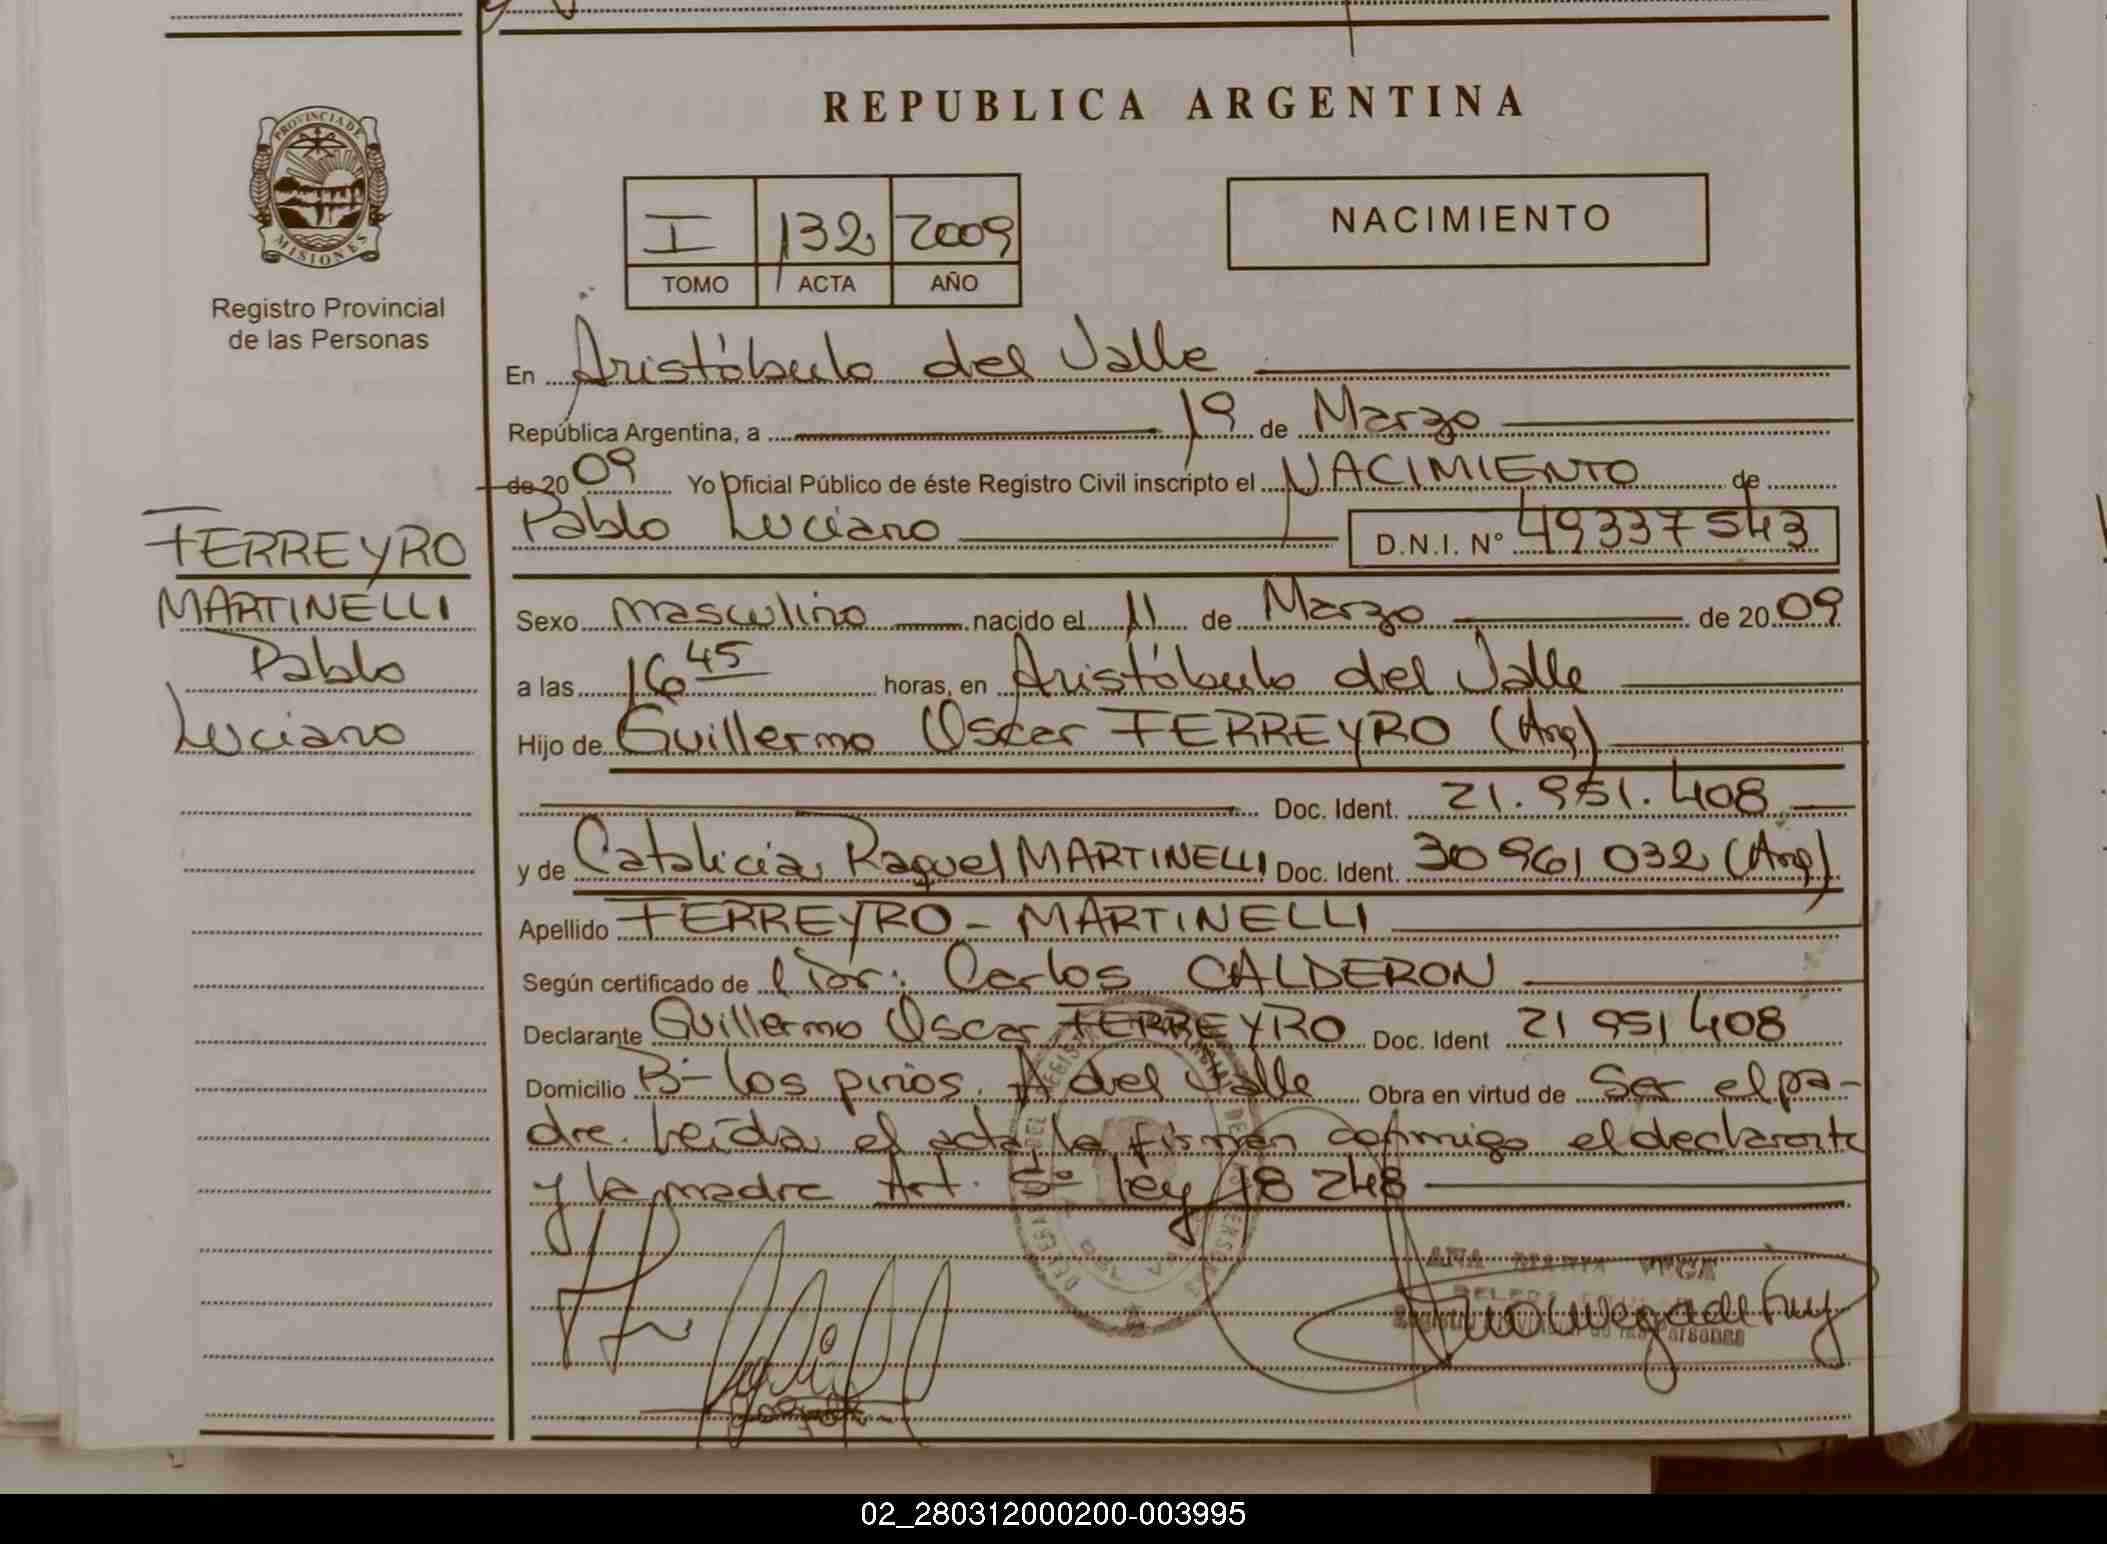 REPUBLICA ARGENTINA
PROVINCIA DE
MISIONES
Registro Provincial
de las Personas
I 132 2009
TOMO ACTA AÑO
NACIMIENTO
En Aristóbulo del Valle
República Argentina, a 19 de Marzo
de 2009 Yo Oficial Público de éste Registro Civil inscripto el NACIMIENTO de
Pablo Luciano D.N.I. N° 49337543
FERREYRO
MARTINELLI
Pablo
Luciano
Sexo masculino nacido el 11 de Marzo de 2009
a las 16 45 horas, en Aristóbulo del Valle
Hijo de Guillermo Oscar FERREYRO (Arg)
Doc. Ident. 21.951.408
y de Catalicia Raquel MARTINELLI Doc. Ident. 30 961 032 (Arg)
Apellido FERREYRO - MARTINELLI
Según certificado de Dr: Carlos CALDERON
Declarante Guillermo Oscar FERREYRO Doc. Ident 21 951 408
Domicilio B- los pinos. A del Valle Obra en virtud de Ser el pa-
dre. Leída el acta la firman conmigo el declarante
y la madre Art. 5º ley 18 248
ANA MARIA VEGA
02_280312000200-003995